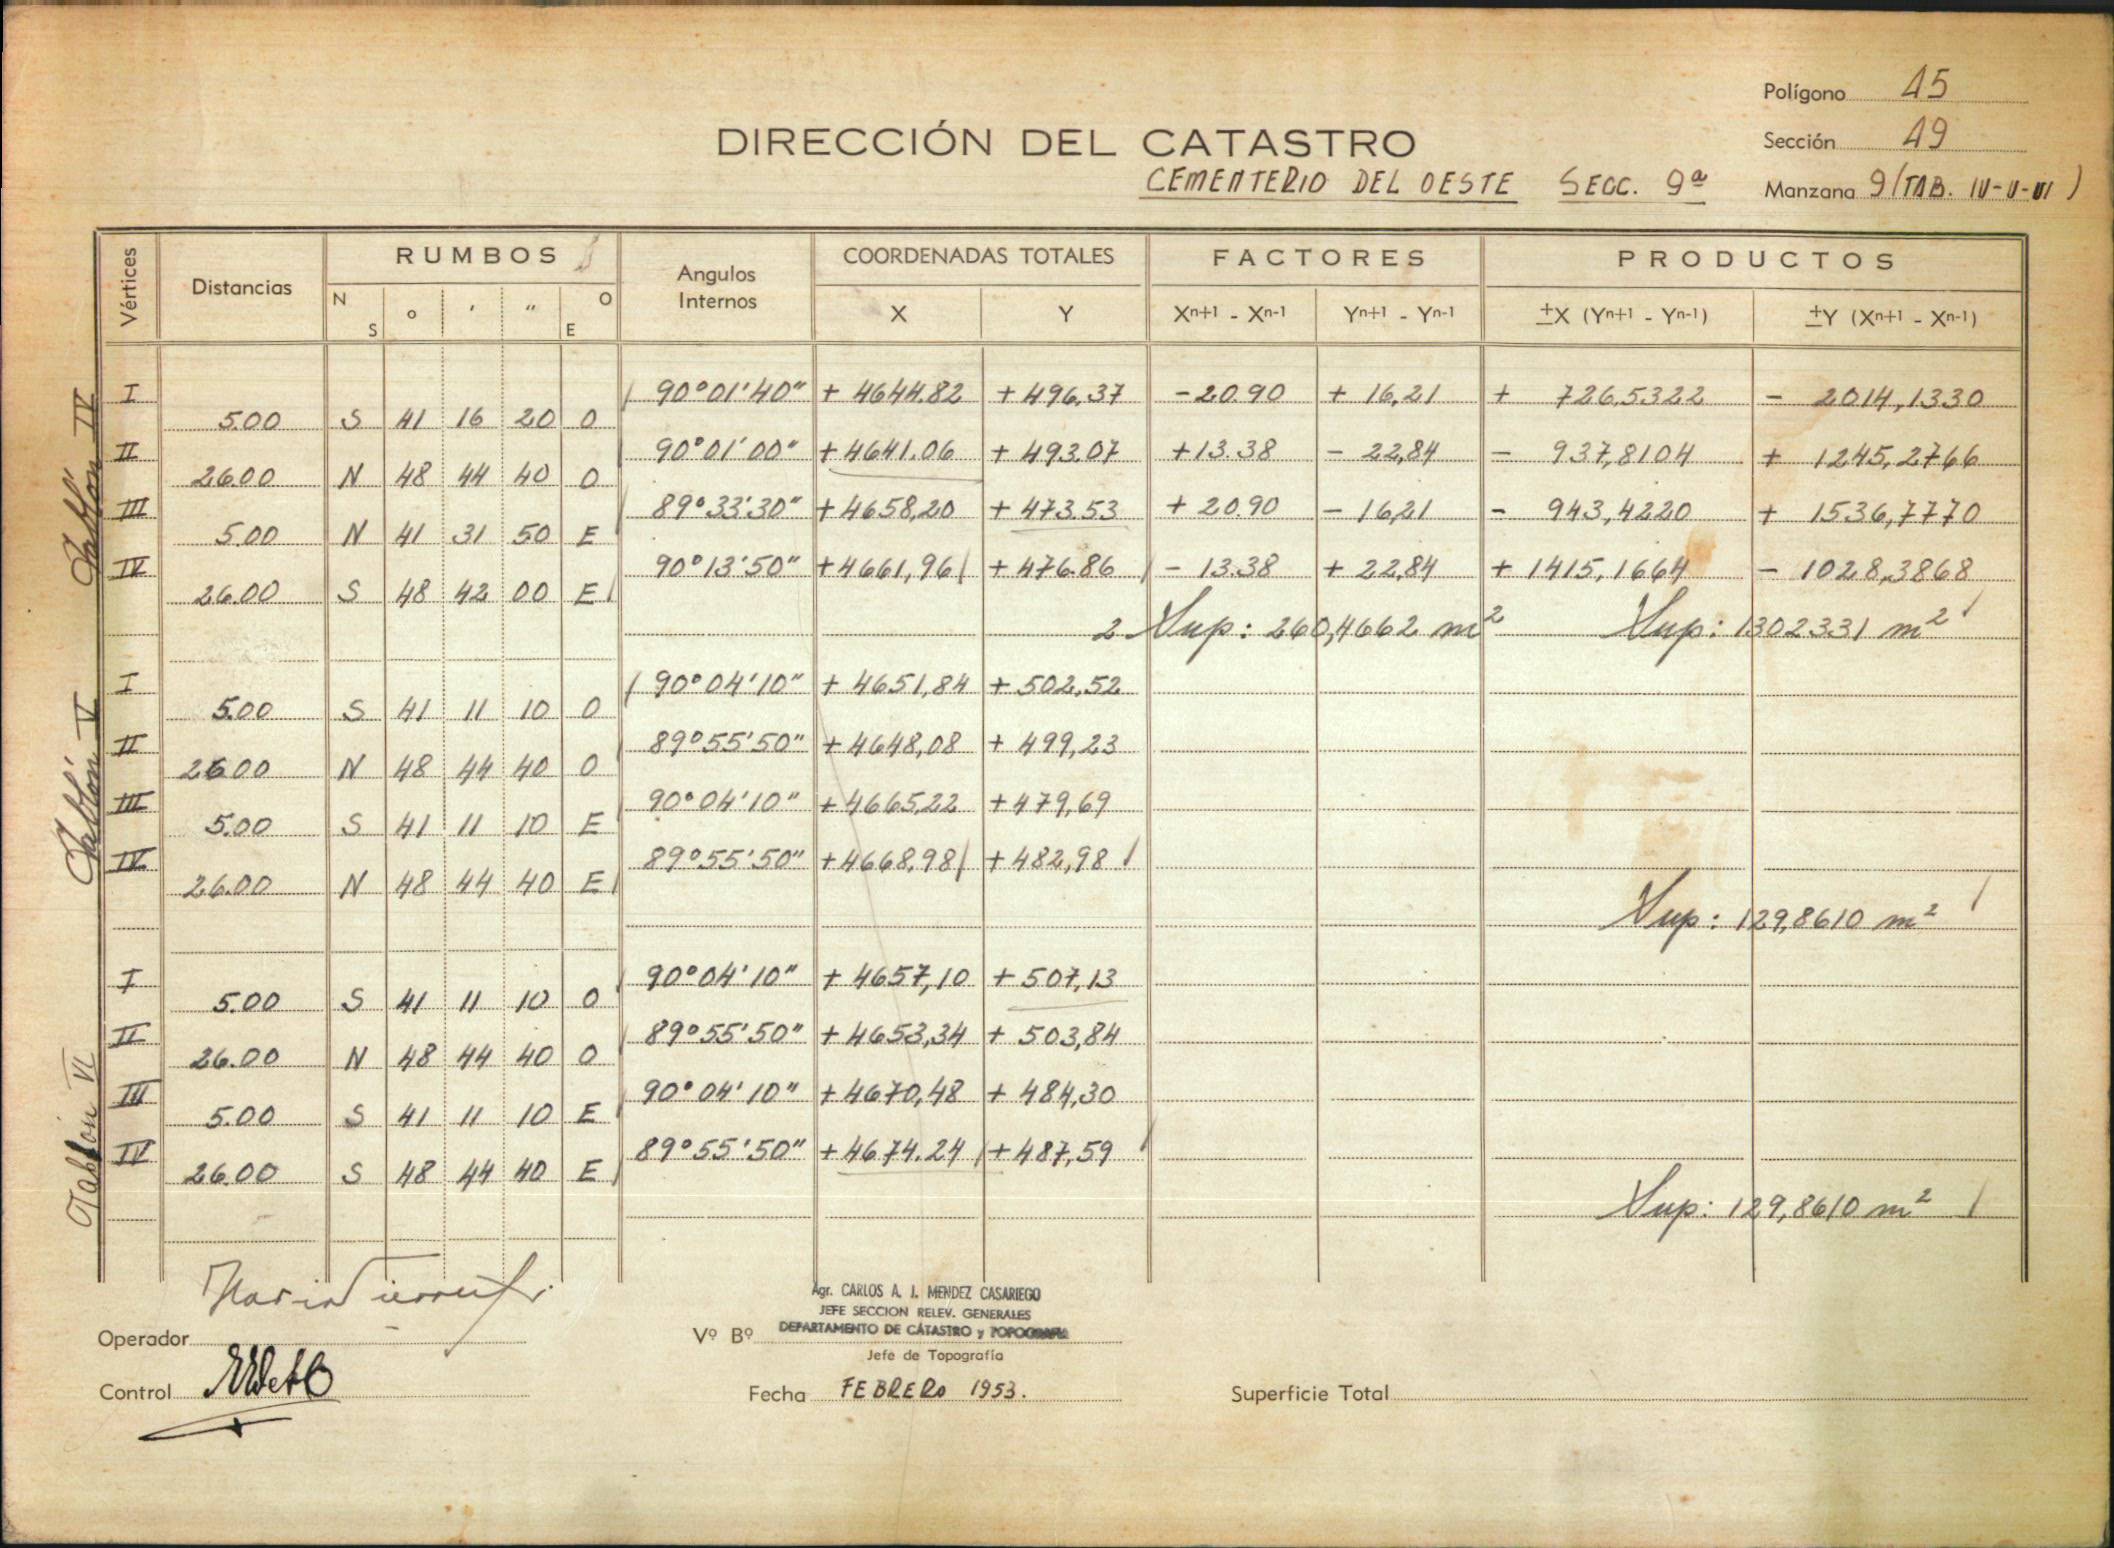 Polígono 15
DIRECCIÓN DEL CATASTRO
Sección 49
CEMENTERIO DEL OESTE SECC. 9ª
Manzana 9 (TAB. IV-V-VI)
Vértices Distancias RUMBOS Angulos Internos COORDENADAS TOTALES FACTORES PRODUCTOS
N S ° ' " O E X Y Xn+1 - Xn-1 Yn+1 - Yn-1 ±X (Yn+1 - Yn-1) ±Y (Xn+1 - Xn-1)
Tablón IV
I 90°01'40" + 4644.82 + 496.37 - 20.90 + 16,21 + 726,5322 - 2014,1330
5.00 S 41 16 20 O
II 90°01'00" + 4641.06 + 493.07 + 13.38 - 22,84 - 937,8104 + 1245,2766
26.00 N 48 44 40 O
III 89°33'30" + 4658,20 + 473.53 + 20.90 - 16,21 - 943,4220 + 1536,7770
5.00 N 41 31 50 E
IV 90°13'50" + 4661,96 + 476.86 - 13.38 + 22,84 + 1415,1664 - 1028,3868
26.00 S 48 42 00 E
2 Sup: 260,4662 m² Sup: 1302331 m²
Tablón V
I 90°04'10" + 4651,84 + 502,52
5.00 S 41 11 10 O
II 89°55'50" + 4648,08 + 499,23
26.00 N 48 44 40 O
III 90°04'10" + 4665,22 + 479,69
5.00 S 41 11 10 E
IV 89°55'50" + 4668,98 + 482,98
26.00 N 48 44 40 E
Sup: 129,8610 m²
Tablón VI
I 90°04'10" + 4657,10 + 507,13
5.00 S 41 11 10 O
II 89°55'50" + 4653,34 + 503,84
26.00 N 48 44 40 O
III 90°04'10" + 4670,48 + 484,30
5.00 S 41 11 10 E
IV 89°55'50" + 4674.24 + 487,59
26.00 S 48 44 40 E
Sup: 129,8610 m²
Agr. CARLOS A. J. MENDEZ CASARIEGO
JEFE SECCION RELEV. GENERALES
Operador
Vº Bº DEPARTAMENTO DE CATASTRO y TOPOGRAFIA
Jefe de Topografía
Control
Fecha FEBRERO 1953.
Superficie Total